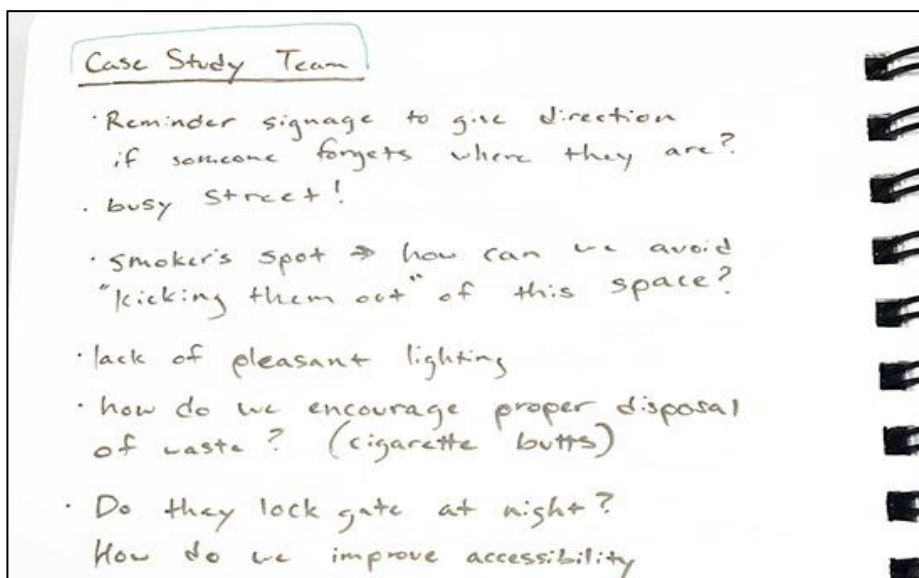 Case Study Team
· Reminder signage to give direction
if someone forgets where they are?
· busy street!
· smoker's spot → how can we avoid
"kicking them out" of this space?
· lack of pleasant lighting
· how do we encourage proper disposal
of waste? (cigarette butts)
· Do they lock gate at night?
How do we improve accessibility